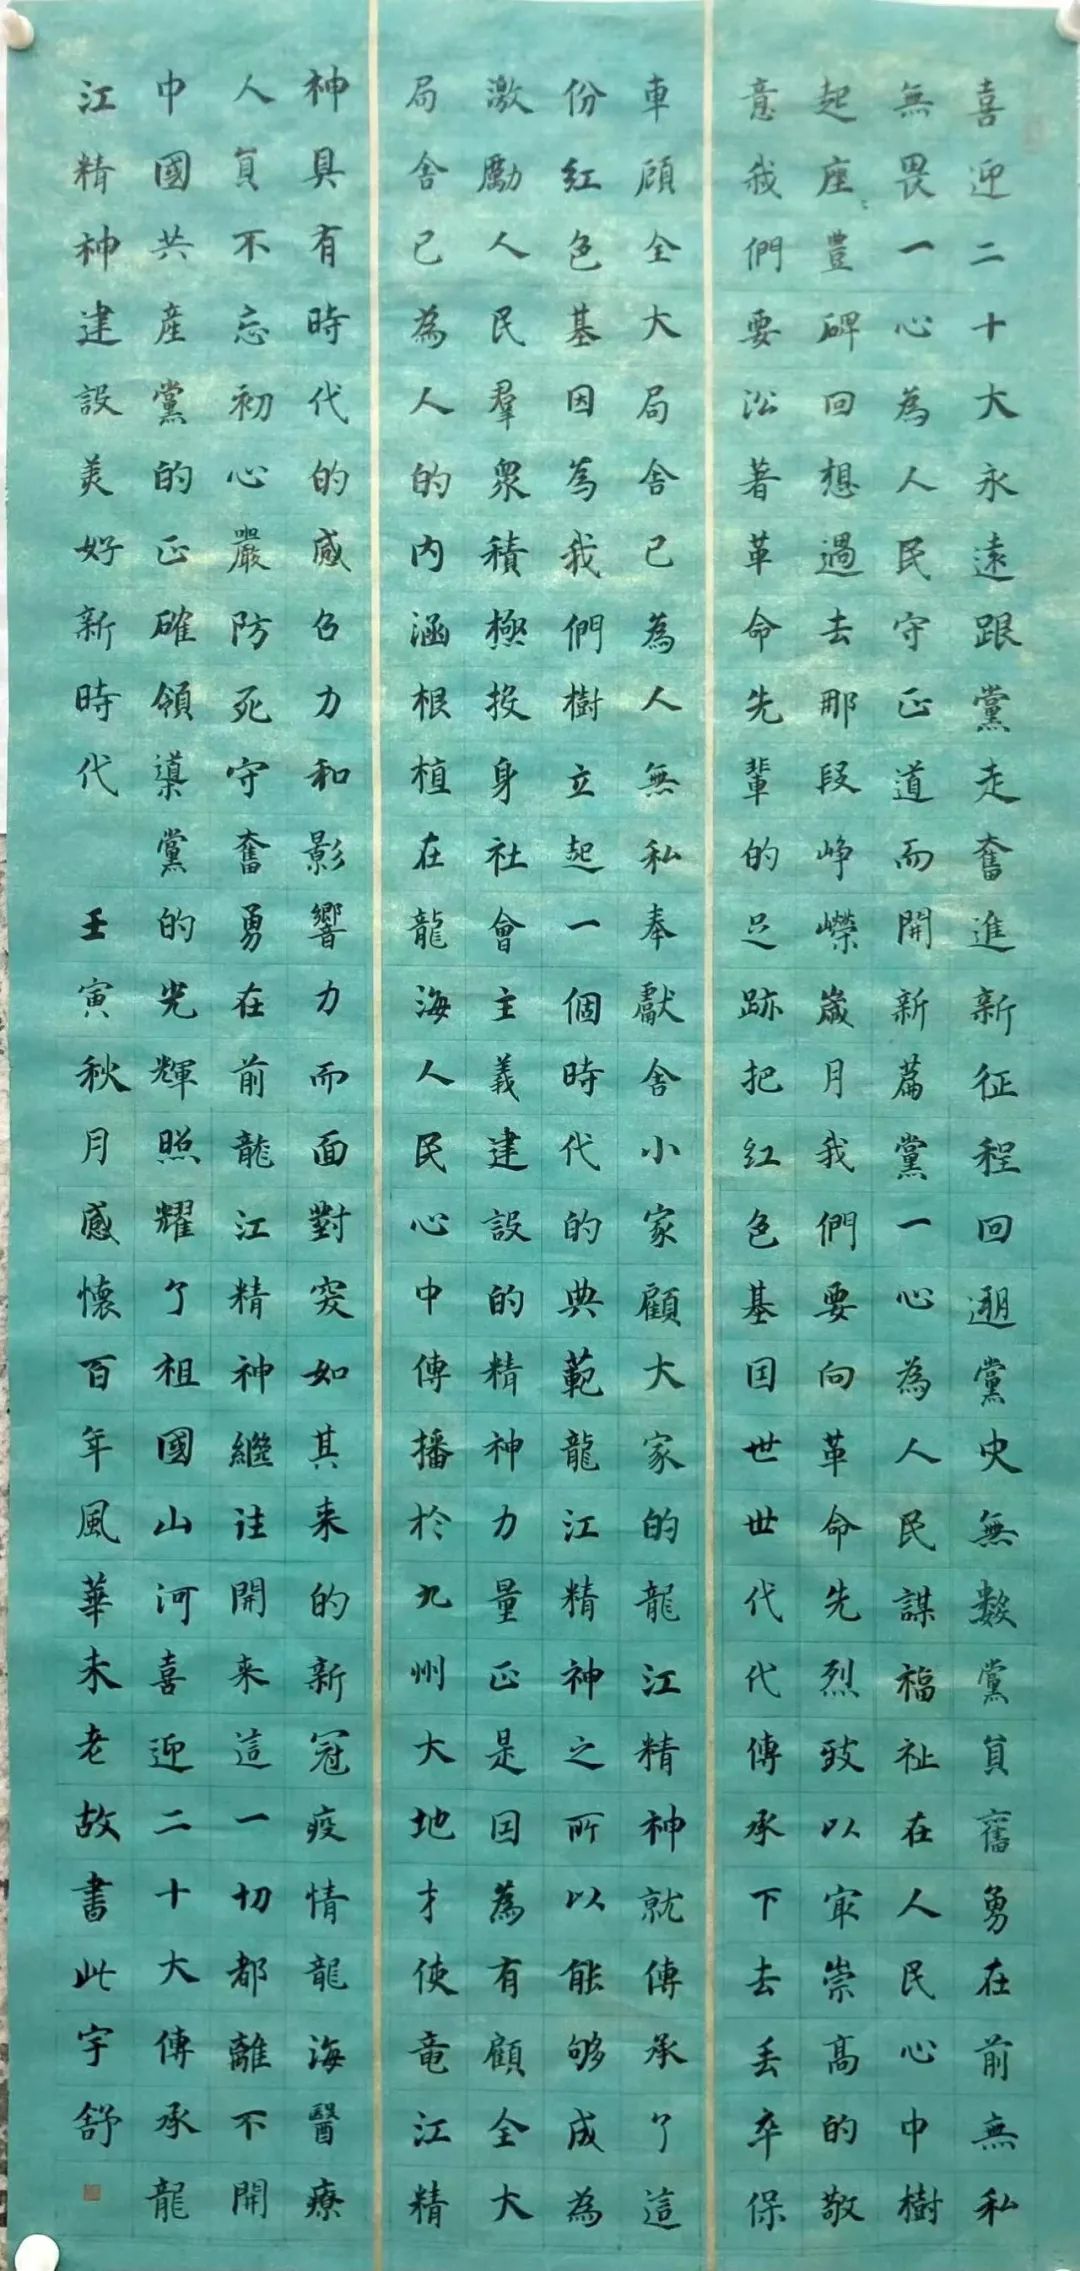 喜迎二十大永遠跟黨走奮進新征程回遡黨史無數黨員奮勇在前無私
無畏一心為人民守正道而開新篇黨一心為人民謀福祉在人民心中樹
起座豐碑回想過去那段崢嶸崴月我們要向革命先烈致以㝡崇高的敬
意我們要沿著革命先輩的足跡把紅色基因世世代代傳承下去丢卒保
車顧全大局舍己為人無私奉獻舍小家顧大家的龍江精神就傳承了這
份紅色基因為我們樹立起一個時代的典範龍江精神之所以能夠成為
激勵人民羣眾積極投身社會主義建設的精神力量正是因為有顧全大
局舍己為人的内涵根植在龍海人民心中傳播於九州大地才使竜江精
神具有時代的感召力和影響力而面對突如其来的新冠疫情龍海醫療
人員不忘初心嚴防死守奮勇在前龍江精神繼往開来這一切都離不開
中國共産黨的正確領導黨的光輝照耀了祖國山河喜迎二十大傳承龍
江精神建設美好新時代 壬寅秋月感懷百年風華未老故書此宇舒